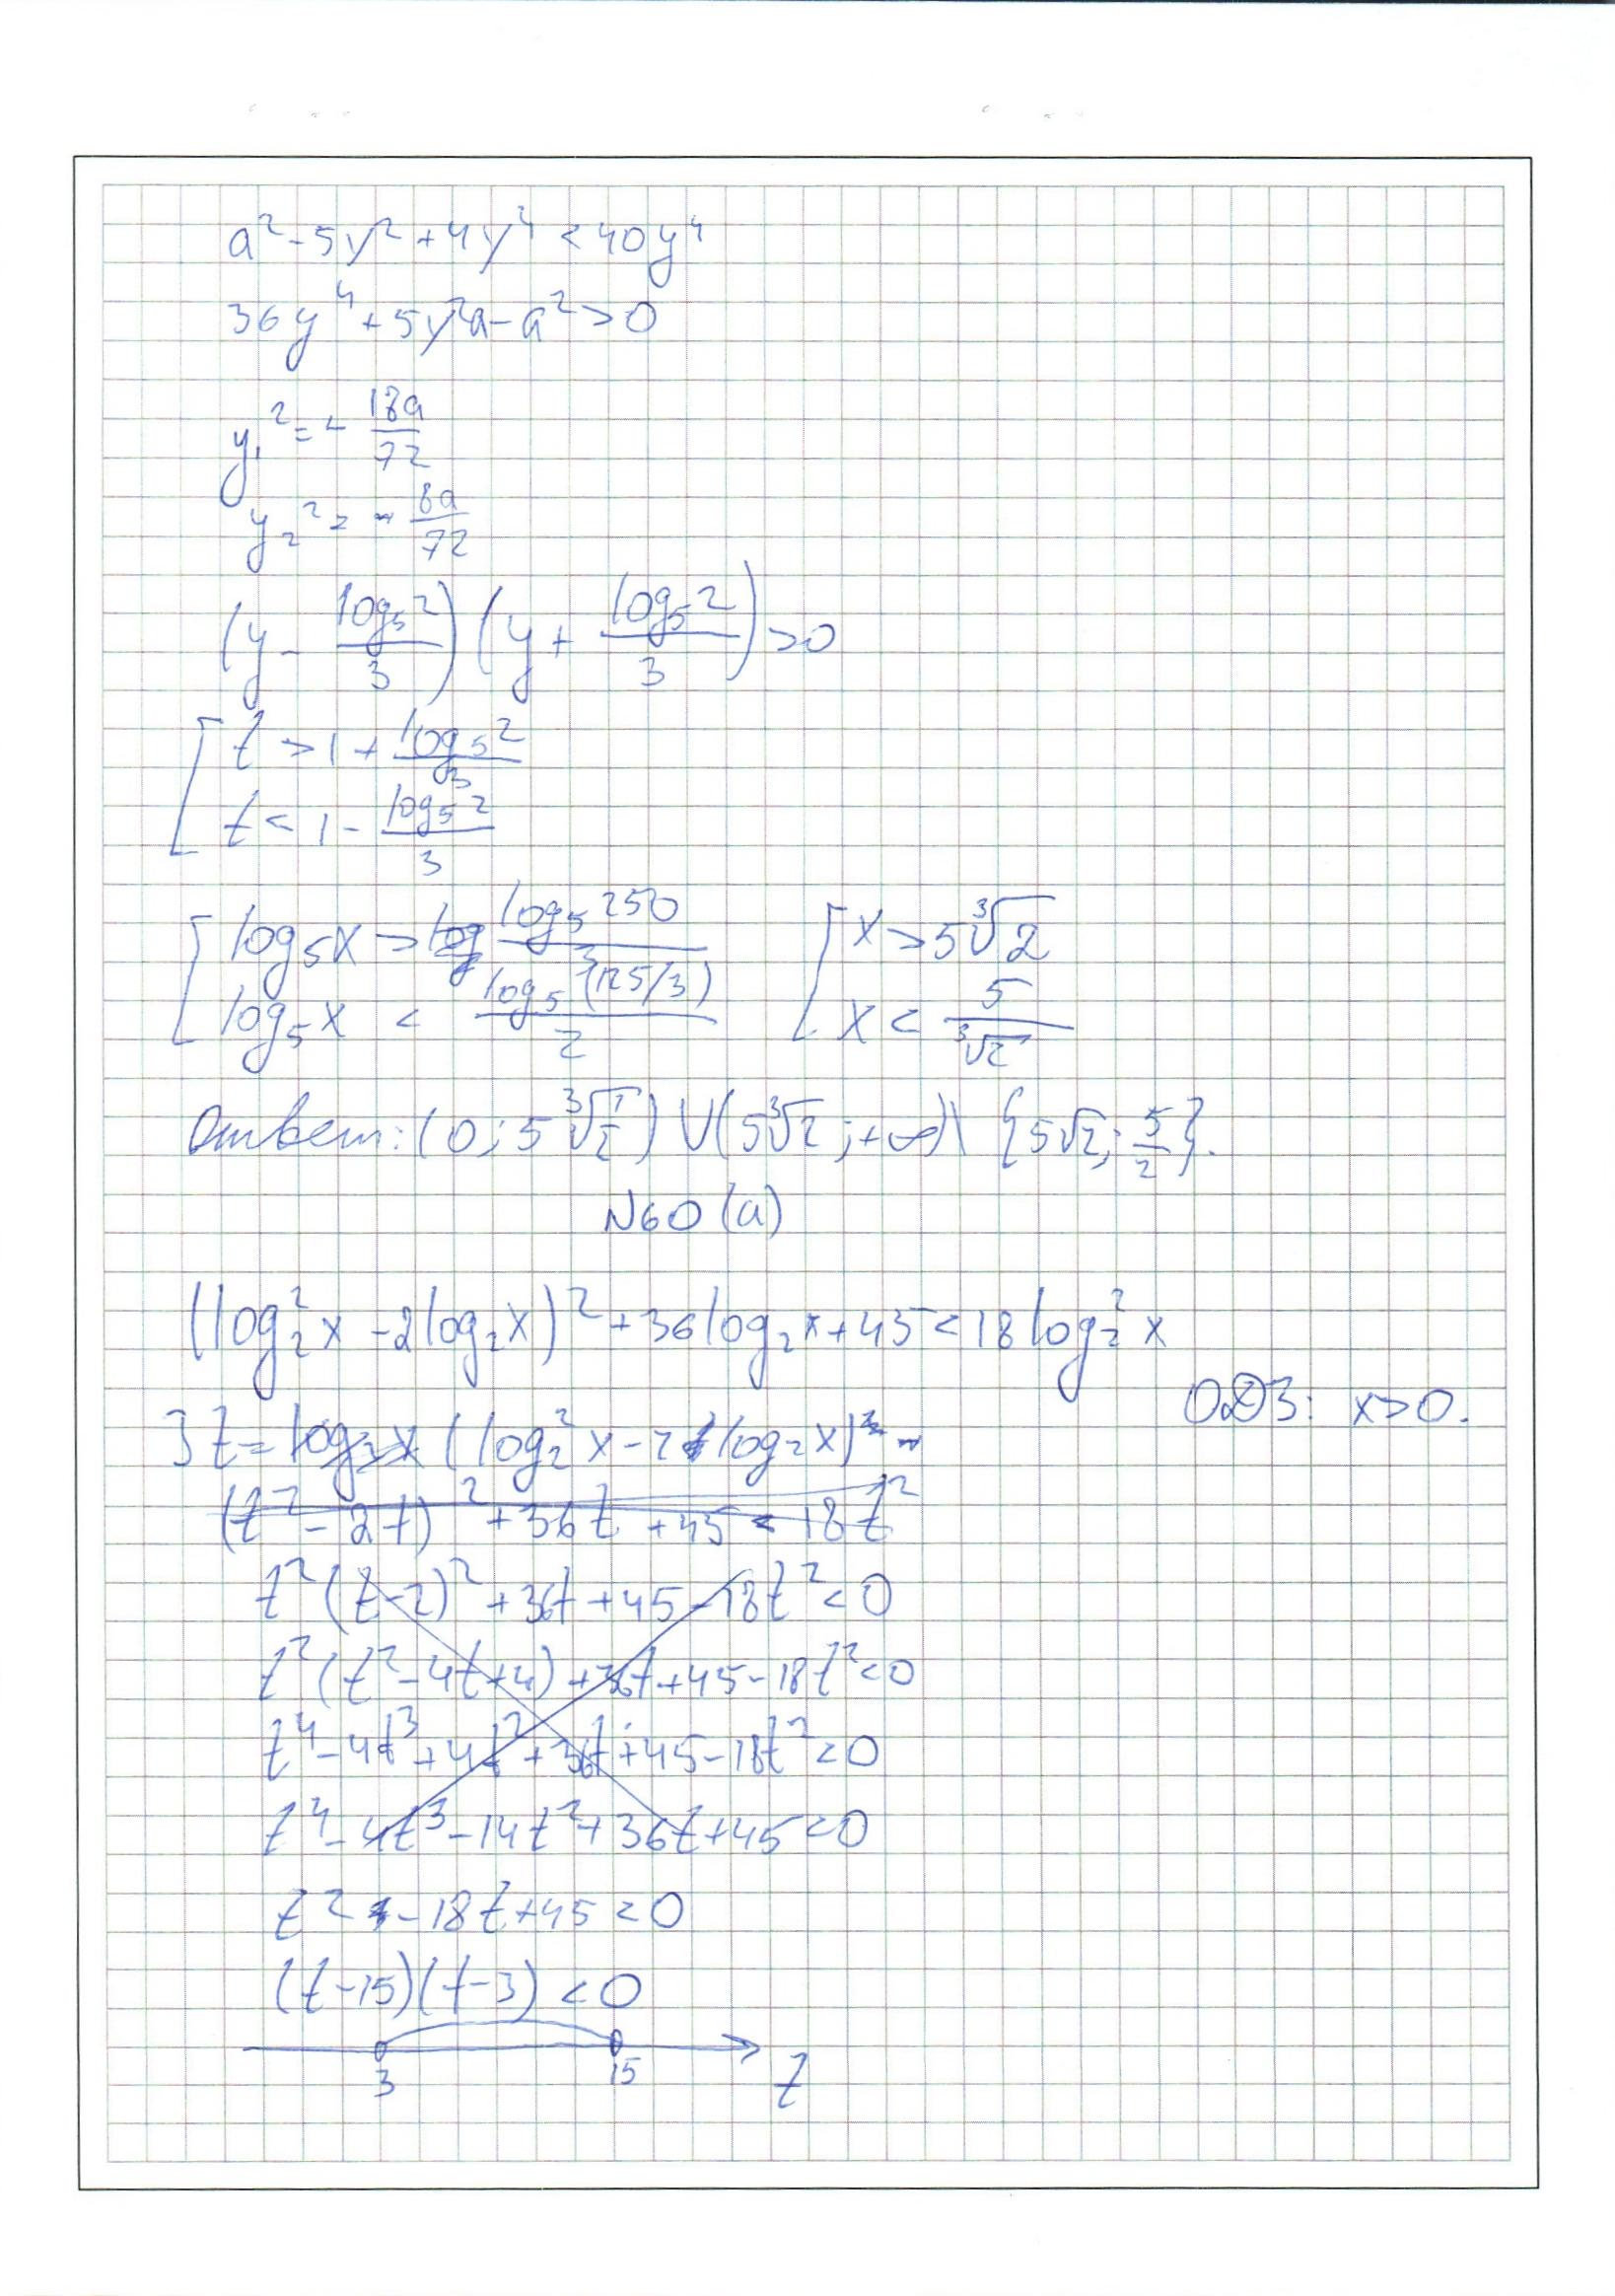 a² - 5y² + 4y⁴ < 40y⁴
36y⁴ + 5y²a - a² > 0
y₁² = - 18a/72
y₂² = - 8a/72
(y - log₅2/3)(y + log₅2/3) > 0
[ t > 1 + log₅2/3
t < 1 - log₅2/3
[ log₅x > log₅250/3 [ x > 5∛2
log₅x < log₅(125/3)/2 x < 5/∛2
Ответ: (0; 5∛(1/2)) ∪ (5∛2; +∞) \ {5√2; 5/2}.
N60 (а)
(log₂²x - 2log₂x)² + 36log₂x + 45 < 18log₂²x
ОДЗ: x > 0.
] t = (log₂²x - 2log₂x)
(t² - 2t)² + 36t + 45 < 18t²
t²(t-2)² + 36t + 45 - 18t² < 0
t²(t² - 4t + 4) + 36t + 45 - 18t² < 0
t⁴ - 4t³ + 4t² + 36t + 45 - 18t² < 0
t⁴ - 4t³ - 14t² + 36t + 45 < 0
t² - 18t + 45 < 0
(t-15)(t-3) < 0
3 15 t